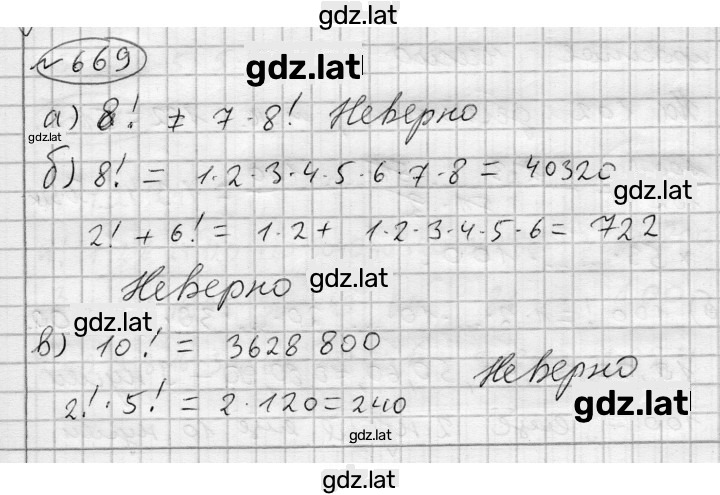 gdz.lat
№ 669
gdz.lat
а) 8! ≠ 7 · 8! Неверно
gdz.lat
б) 8! = 1·2·3·4·5·6·7·8 = 40320
gdz.lat
2! + 6! = 1·2 + 1·2·3·4·5·6 = 722
Неверно
gdz.lat
gdz.lat
в) 10! = 3628 800
Неверно
2! · 5! = 2 · 120 = 240
gdz.lat
gdz.lat
gdz.lat